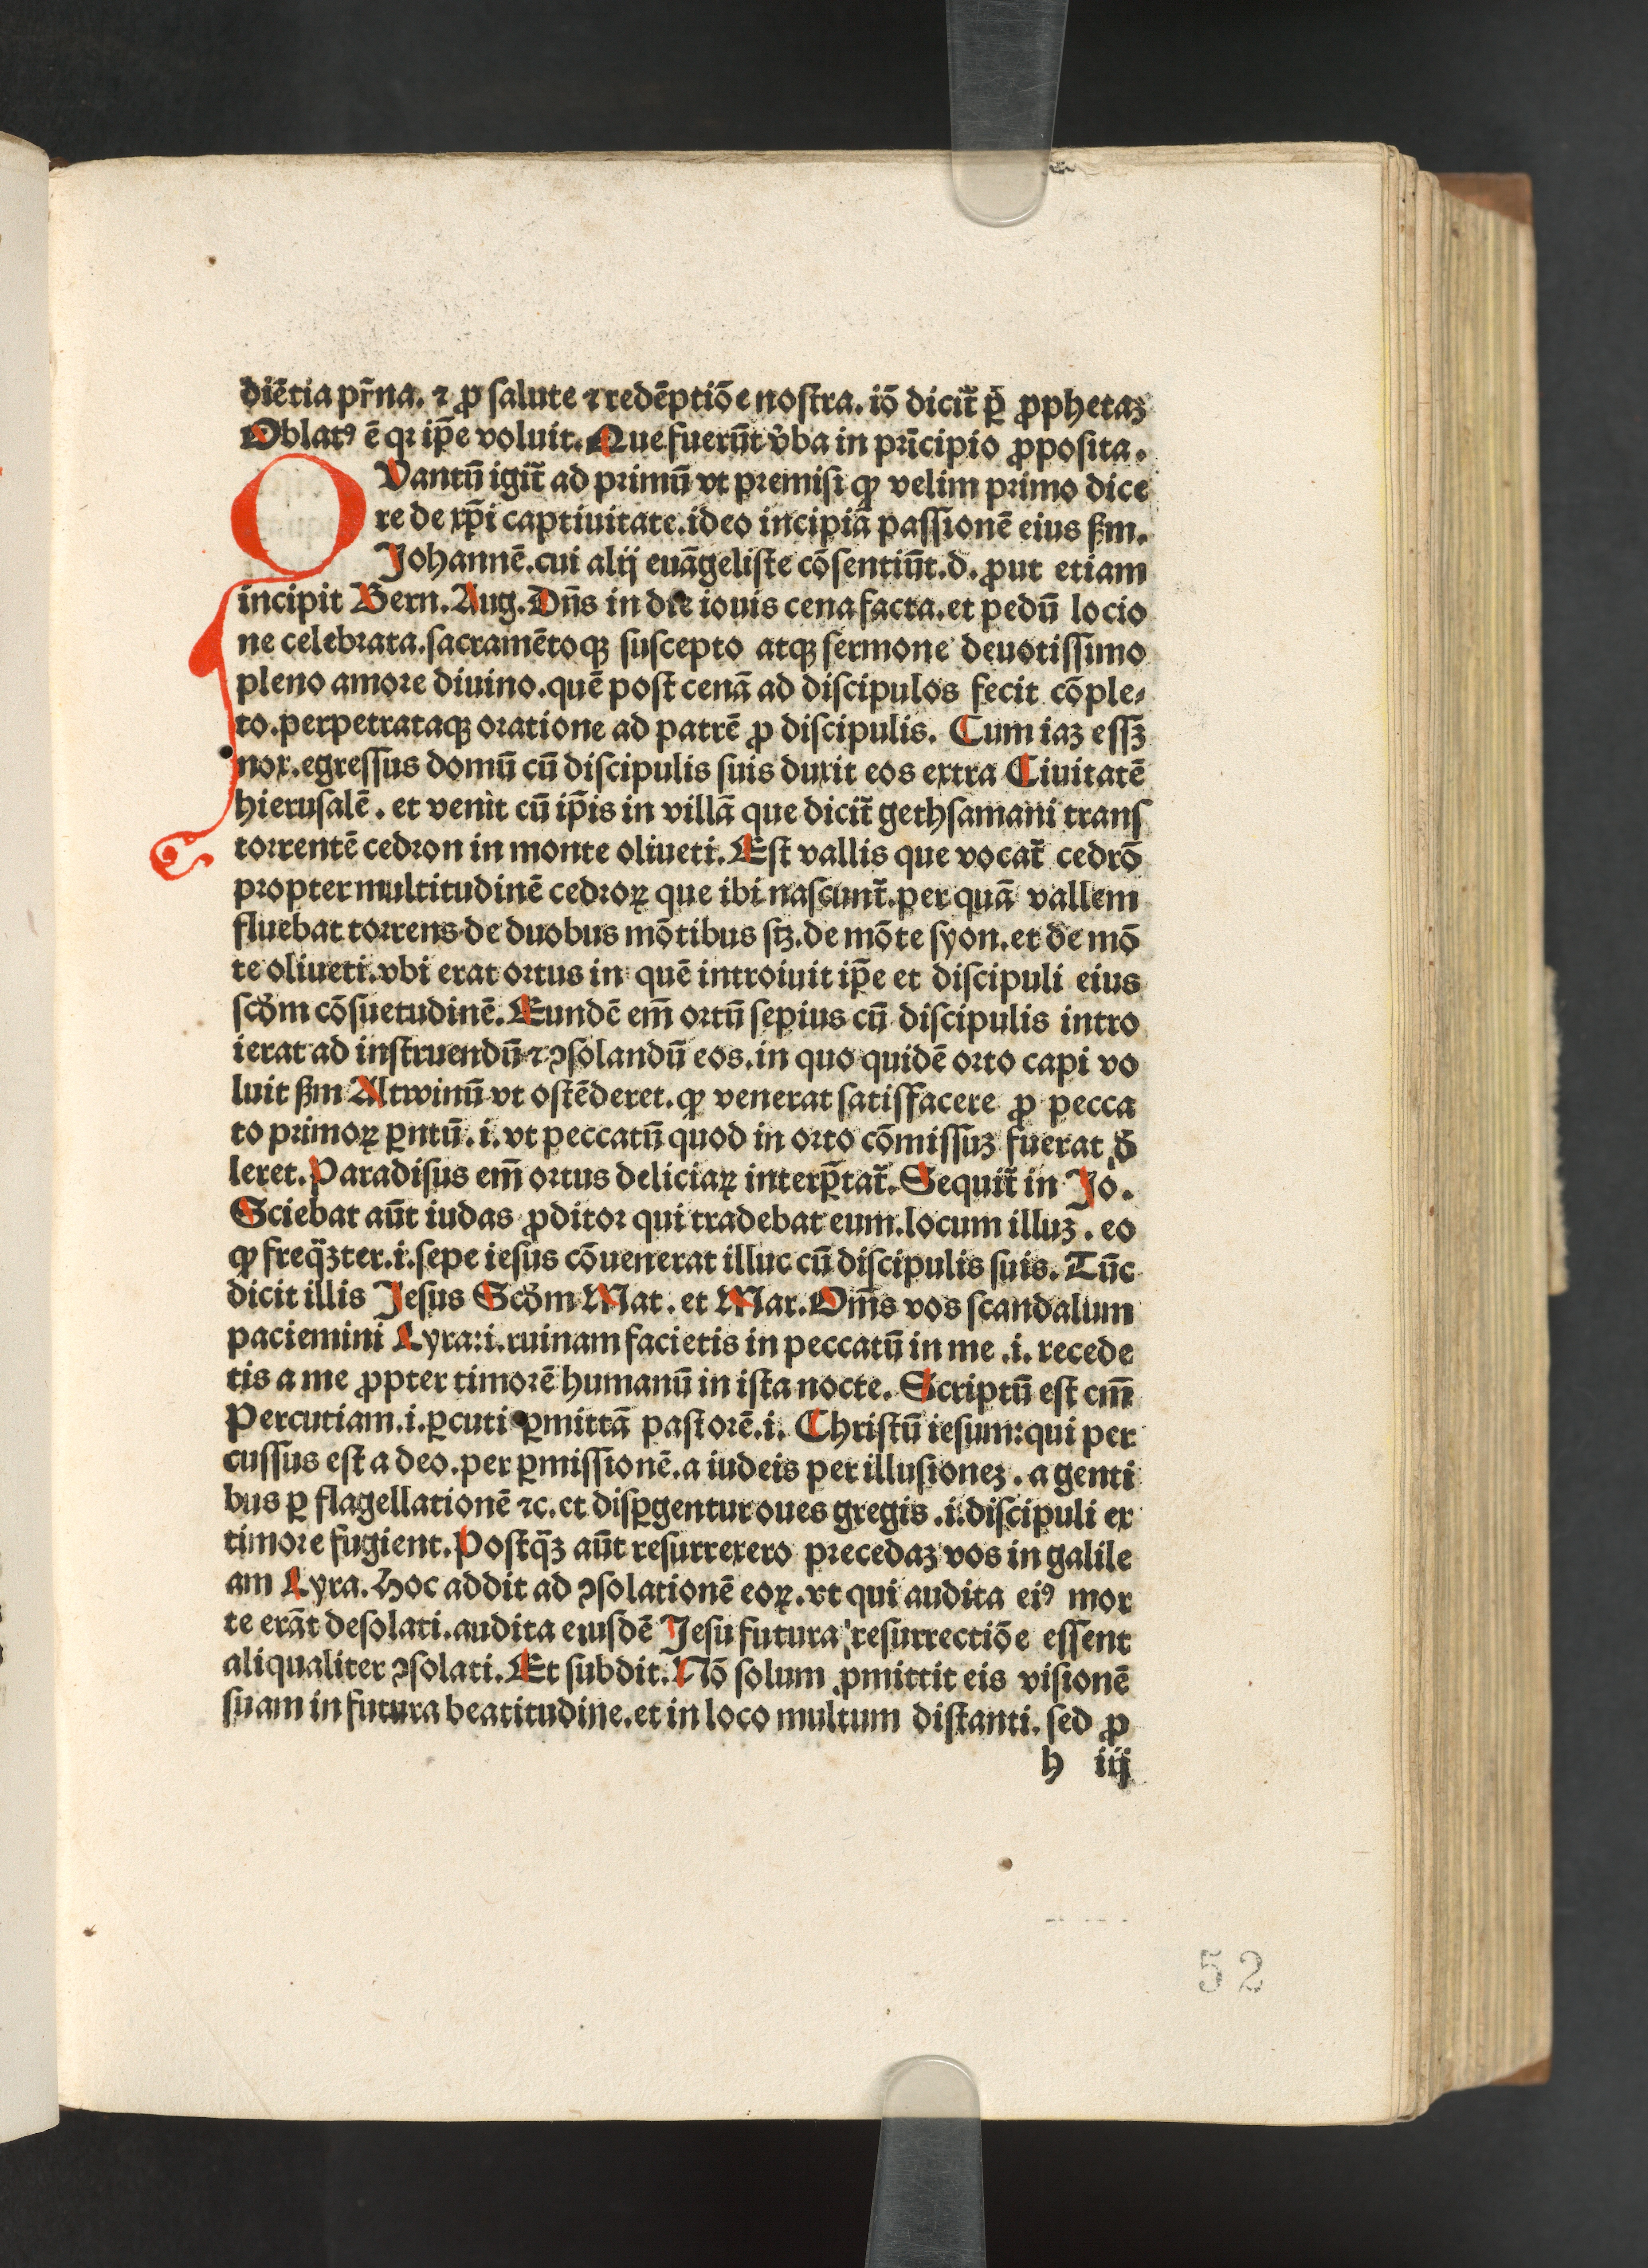 diētia pr̄na. ⁊ ꝓ salute ⁊ redēptiōe nostra. iō dicit᷑ ꝑ ꝓphetaꝫ
Oblatꝰ ē qꝛ ip̄e voluit. Que fuerūt v̓ba in prīcipio ꝓposita.
QVantū igit᷑ ad primū vt premisi ꝙ velim primo dice
re de xp̄i captiuitate. ideo incipiā passionē eius ẜm.
Johannē. cui alij euāgeliste cōsentiūt. d. ꝓut etiam
incipit Bern. Aug. Dn̄s in die iouis cena facta. et pedū locio
ne celebrata. sacramētoqꝫ suscepto atqꝫ sermone deuotissimo
pleno amore diuino. quē post cenā ad discipulos fecit cōple⸗
to. perpetrataqꝫ oratione ad patrē ꝓ discipulis. Cum iaꝫ essꝫ
nox. egressus domū cū discipulis suis duxit eos extra Ciuitatē
hierusalē. et venit cū ip̄is in villā que dicit᷑ gethsamani trans
torrentē cedron in monte oliueti. Est vallis que vocat᷑ cedrō
propter multitudinē cedroꝝ que ibi nascunt᷑. per quā vallem
fluebat torrens de duobus mōtibus stꝫ. de mōte syon. et de mō
te oliueti. vbi erat ortus in quē introiuit ip̄e et discipuli eius
scd̓m cōsuetudinē. Eundē em̄ ortū sepius cū discipulis intro
ierat ad instruendū ⁊ ꝯsolandū eos. in quo quidē orto capi vo
luit ẜm Altwinū vt ostēderet. ꝙ venerat satisfacere ꝓ pecca
to primoꝝ ꝑntū. i. vt peccatū quod in orto cōmissuꝫ fuerat d̓
leret. Paradisus em̄ ortus deliciaꝝ interp̄tat᷑. Sequit᷑ in Jo.
Sciebat aūt iudas ꝓditor qui tradebat eum. locum illuꝫ. eo
ꝙ freq̄ꝫter. i. sepe iesus cōuenerat illuc cū discipulis suis. Tūc
dicit illis Jesus Scd̓m Mat. et Mar. Om̄s vos scandalum
paciemini Lyra: i. ruinam facietis in peccatū in me .i. recede
tis a me ꝓpter timorē humanū in ista nocte. Scriptū est em̄
Percutiam. i. ꝑcuti ꝑmittā pastorē. i. Christū iesum: qui per
cussus est a deo. per ꝑmissionē. a iudeis per illusioneꝫ. a genti
bus ꝑ flagellationē ⁊c. et disꝑgentur oues gregis .i. discipuli ex
timore fugient. Postq̄ꝫ aūt resurrexero precedaꝫ vos in galile
am Lyra. Hoc addit ad ꝯsolationē eoꝝ. vt qui audita eiꝰ mor
te erāt desolati. audita eiusdē Jesu futura resurrectiōe essent
aliqualiter ꝯsolati. Et subdit. Nō solum ꝓmittit eis visionē
suam in futura beatitudine. et in loco multum distanti. sed ꝓ
h iij
52